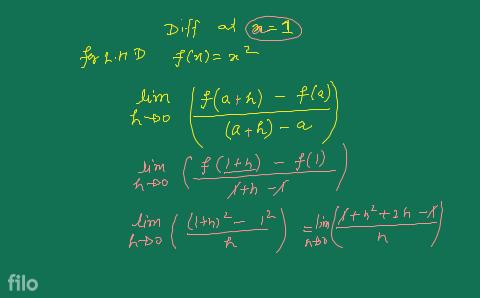 Diff at x=1
for L.H.D f(x) = x²
lim h→0 ( f(a+h) - f(a) / (a+h) - a )
lim h→0 ( f(1+h) - f(1) / 1+h -1 )
lim h→0 ( (1+h)² - 1² / h ) = lim h→0 ( 1+h²+2h-1 / h )
filo